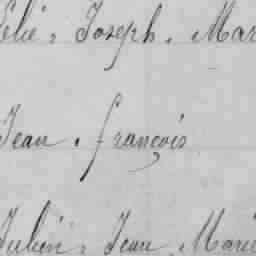 Félie, Joseph, Mar
Jean, françois
Julien, Jean, Marie